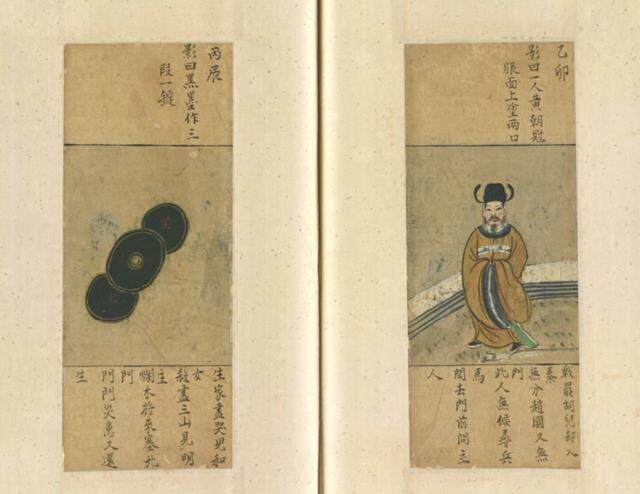 乙卯
影曰一人黃朝冠
面上塗兩口
戰罷胡兒却入
秦
無分趙國又無
門
此人無候尋兵
馬
問去門前問主
人
丙辰
影曰黑墨作三
段一錠
生家盡哭兒和
女
盡三山見明
主
木將來塞北
門
門門災息又還
生